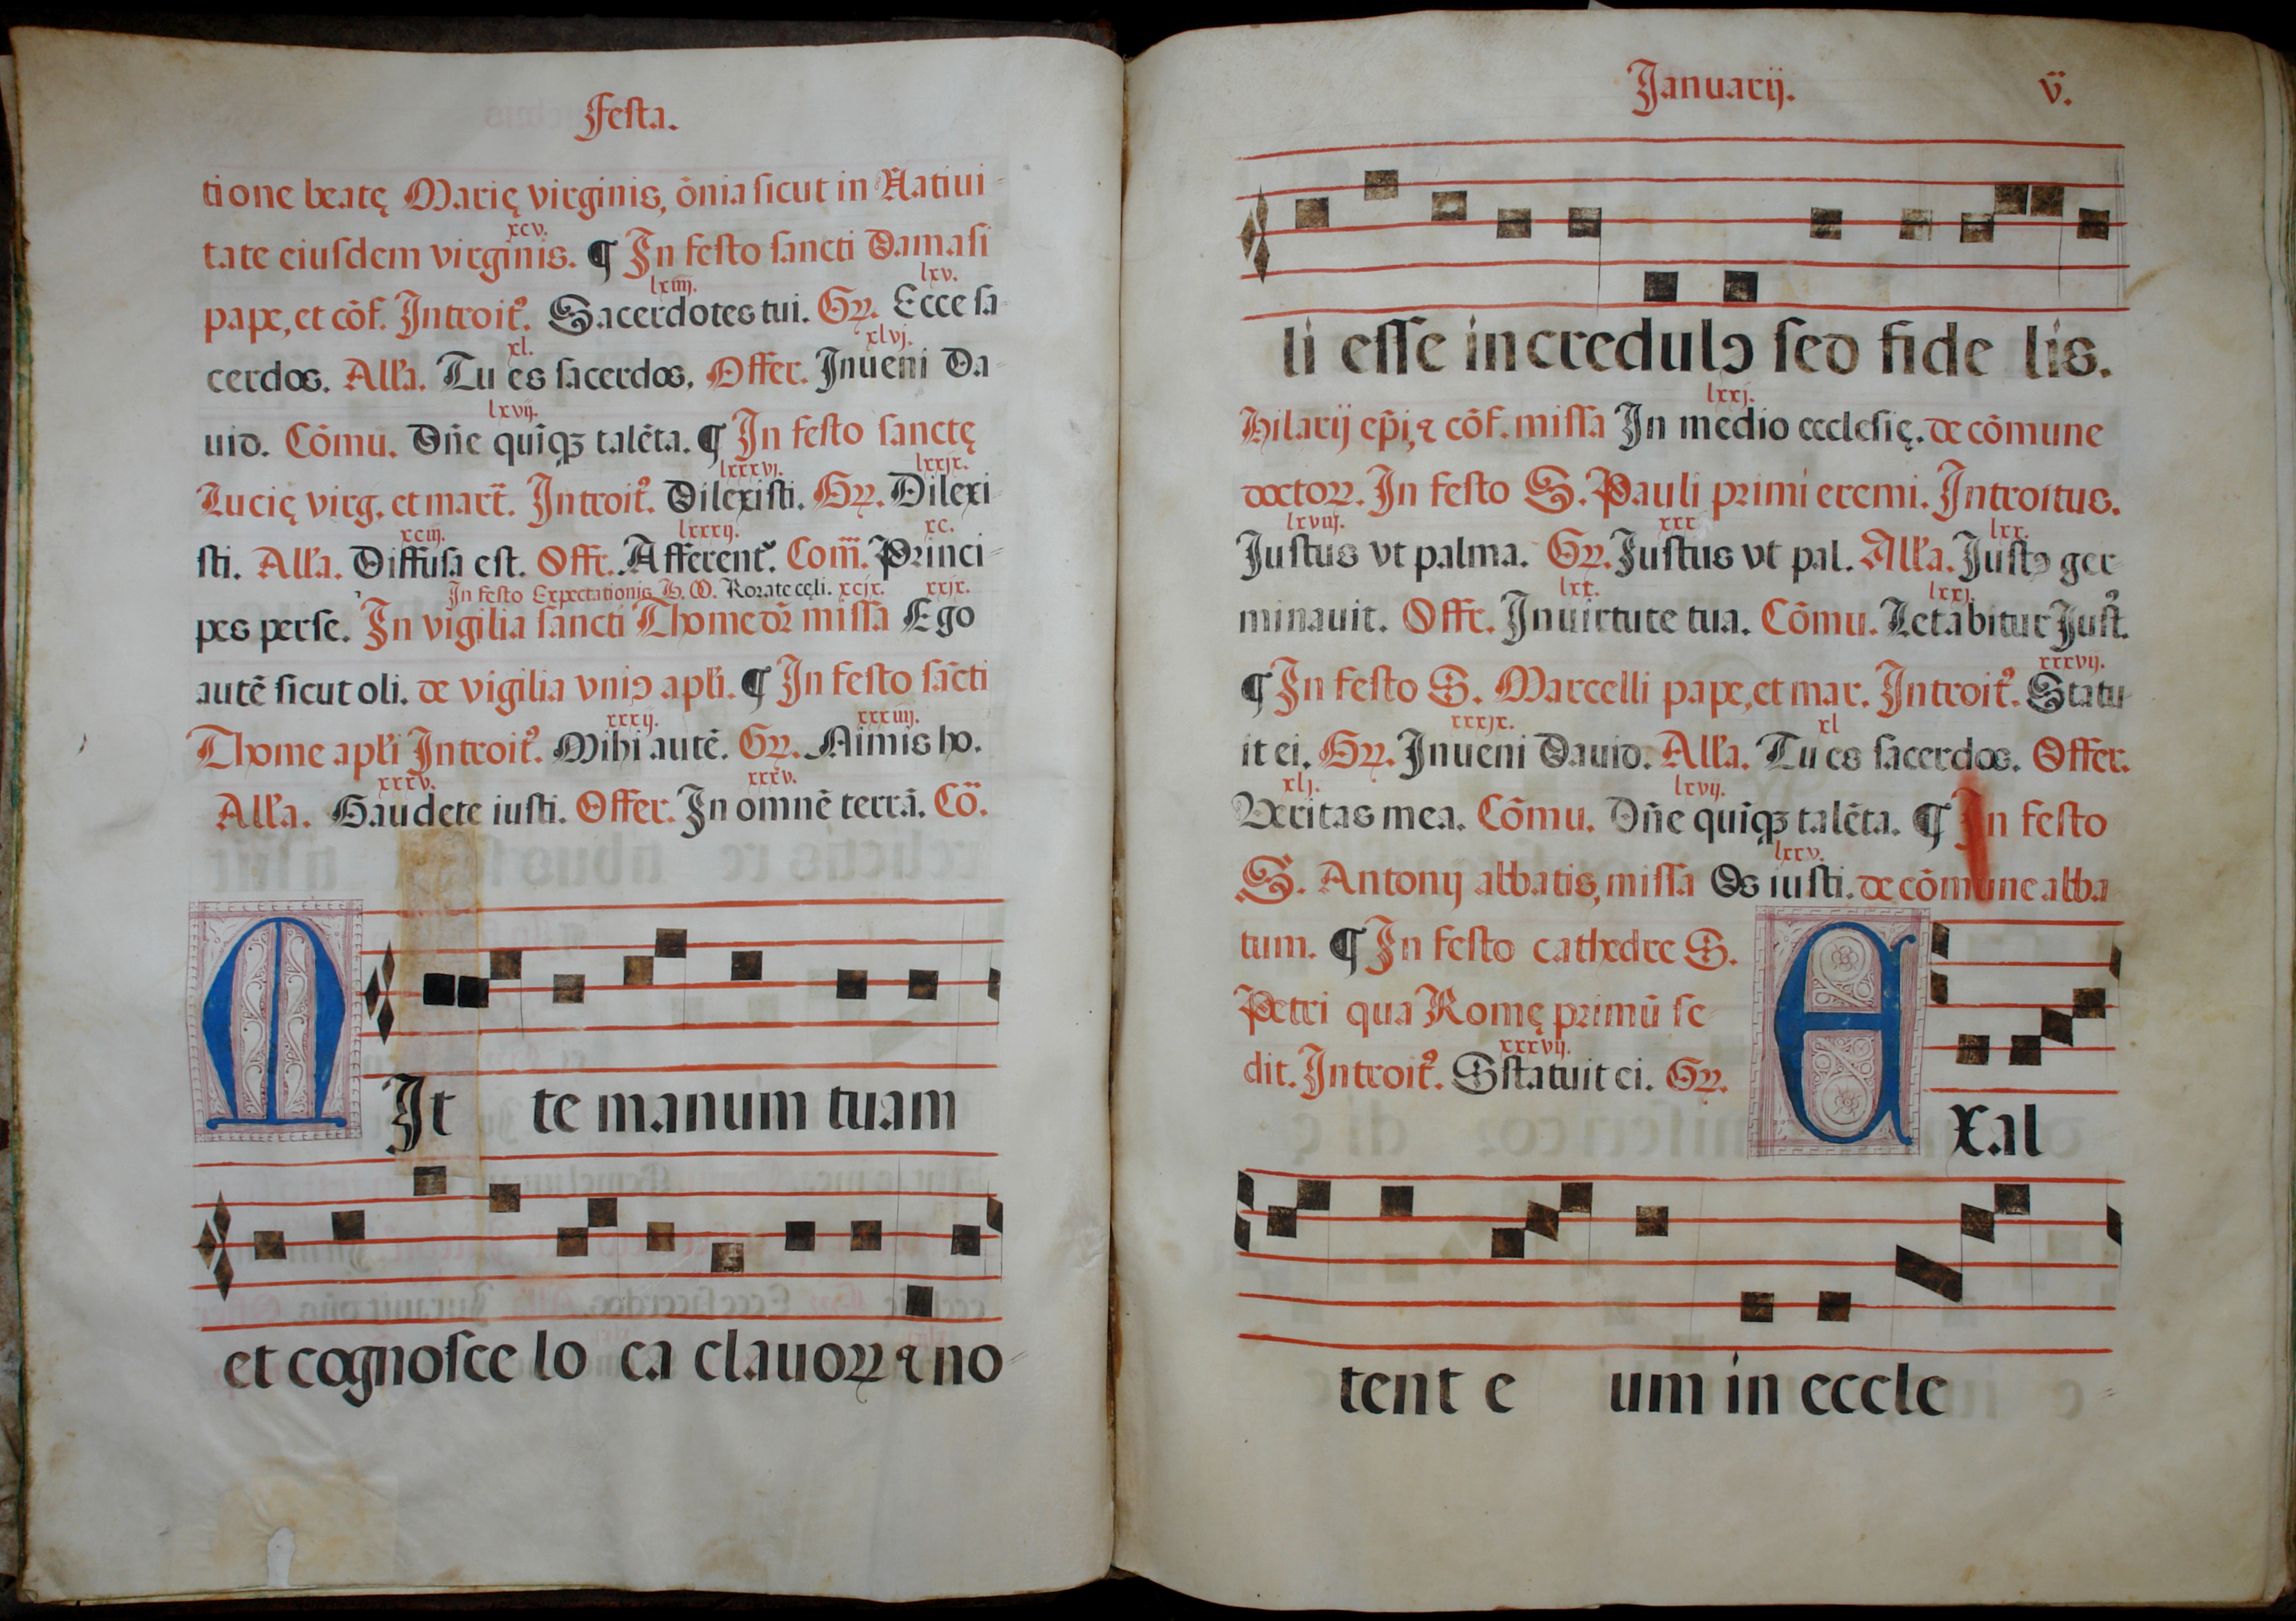 Festa.
tione beatę Marię virginis, õnia sicut in Natiui-
xcv.
tate eiusdem virginis. ¶ In festo sancti Damasi
lxiiij. lxv.
pape, et cõf. Introitꝰ. Sacerdotes tui. Gꝝ. Ecce sa-
xl. xlvj.
cerdos. Alľa. Tu es sacerdos. Offer. Inueni Da-
lxvij.
uid. Cõmu. Dñe quĩqꝫ talẽta. ¶ In festo sanctę
lxxxvj. lxxjx.
Lucię virg. et mart̃. Introitꝰ. Dilexisti. Gꝝ. Dilexi-
xciij. lxxxij. xc.
sti. Alľa. Diffusa est. Offr. Afferentᷣ. Com̃. Princi-
In festo Expectationis B. M. Rorate cęli. xcjx. xxjx.
pes perse. In vigilia sancti Thome dr̃ missa Ego
autẽ sicut oli. de vigilia vniꝰ apľi. ¶ In festo sãcti
xxxij. xxxiiij.
Thome apľi Introitꝰ. Mihi autẽ. Gꝝ. Nimis ho.
xxxv. xxxv.
Alľa. Gaudete iusti. Offer. In omnẽ terrã. Cõ.
MIt te manum tuam
et cognosce lo ca clauoꝝ ⁊ no-
Januarij. v.
li esse incredulꝰ sed fide lis.
lxxj.
Hilarij ep̃i, ⁊ cõf. missa In medio ecclesię. de cõmune
doctoꝝ. In festo S. Pauli primi eremi. Introitus.
lxviij. xxx lxx.
Justus vt palma. Gꝝ. Justus vt pal. Alľa. Justꝰ ger-
lxx. lxxj.
minauit. Offr. In uirtute tua. Cõmu. Letabitur Justꝰ.
xxxvij.
¶ In festo S. Marcelli pape, et mar. Introitꝰ. Statu-
xxxjx. xl
it ei. Gꝝ. Inueni Dauid. Alľa. Tu es sacerdos. Offer.
xlj. lxvij.
Veritas mea. Cõmu. Dñe quĩqꝫ talẽta. ¶ In festo
lxxv.
S. Antonij abbatis, missa Os iusti. de cõmune abba-
tum. ¶ In festo cathedre S.
Petri qua Romę primũ se-
xxxvij.
dit. Introitꝰ. Sstatuit ei. Gꝝ.
EXal
tent e um in eccle-